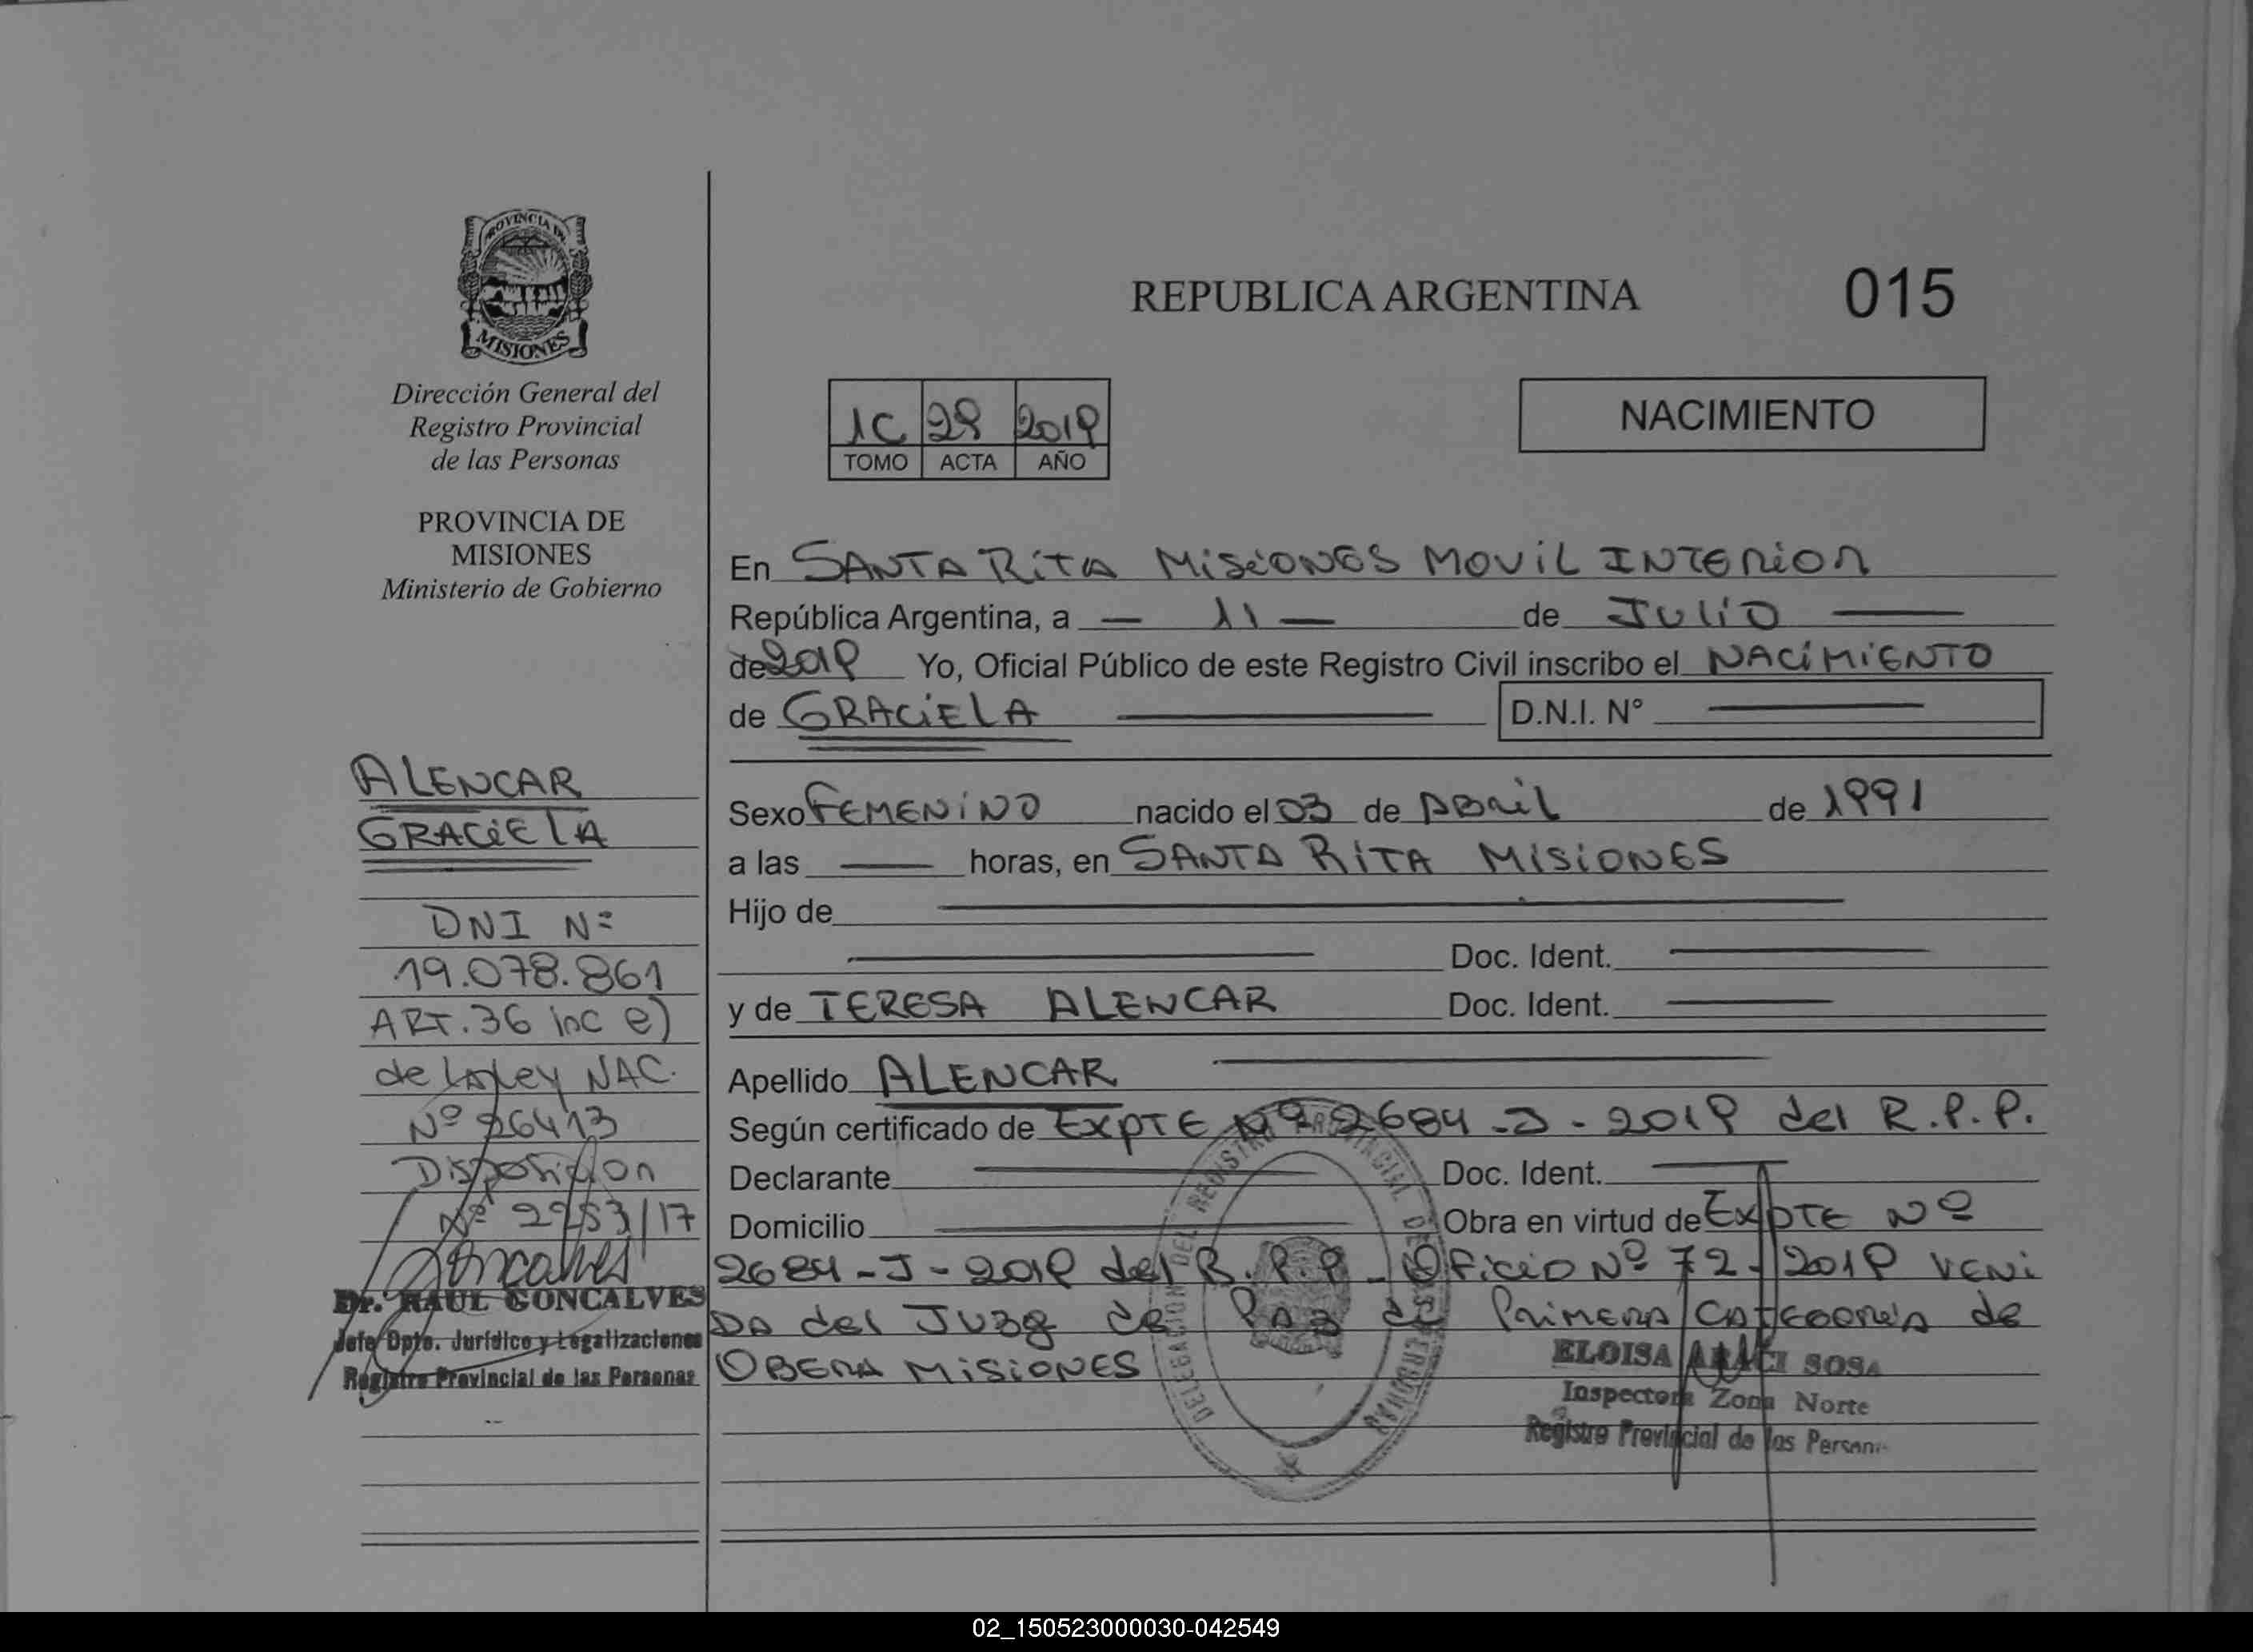 PROVINCIA DE
MISIONES
Dirección General del
Registro Provincial
de las Personas
PROVINCIA DE
MISIONES
Ministerio de Gobierno
ALENCAR
GRACiELA
DNI Nº
19.078.861
ART.36 inc e)
de la Ley NAC.
Nº 26413
Disposicion
Nº 2253/17
Goncalves
Dr. RAUL GONCALVES
Jefe Dpto. Jurídico y Legalizaciones
Registro Provincial de las Personas
REPUBLICA ARGENTINA 015
1C 28 2019
TOMO ACTA AÑO
NACIMIENTO
En SANTA RiTA MiSiONES MOViL INTERiOR
República Argentina, a — 11 — de JULiO —
de 2019 Yo, Oficial Público de este Registro Civil inscribo el NACiMiENTO
de GRACiELA — D.N.I. N° —
Sexo FEMENiNO nacido el 03 de ABRiL de 1991
a las — horas, en SANTA RiTA MiSiONES
Hijo de —
— Doc. Ident. —
y de TERESA ALENCAR Doc. Ident. —
Apellido ALENCAR —
Según certificado de EXPTE Nº 2684-J-2019 del R.P.P.
Declarante — Doc. Ident. —
Domicilio — Obra en virtud de EXPTE Nº
2684-J-2019 del R.P.P. - OFiCiO Nº 72-/2019 VENi
DA del JUZg de PAZ de PRiMERA CATEGORiA de
OBERA MiSiONES
DELEGACION DEL REGISTRO PROVINCIAL DE LAS PERSONAS
ELOISA ARACI SOSA
Inspectora Zona Norte
Registro Provincial de las Person
02_150523000030-042549